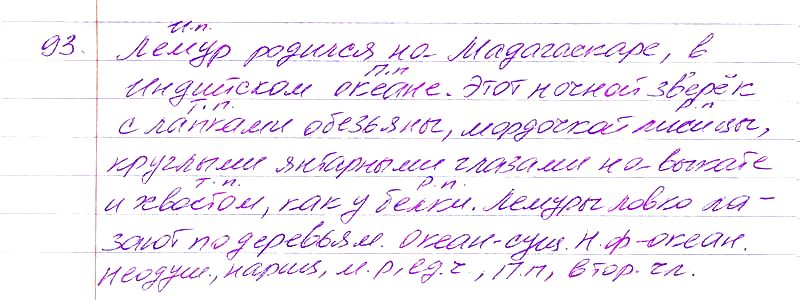 И.п.
93. Лемур родился на Мадагаскаре, в
П.п
Индийском океане. Этот ночной зверёк
Т.п. Р.п
с лапками обезьяны, мордочкой лисицы,
круглыми янтарными глазами на выкате
Т.п. Р.п.
и хвостом, как у белки. Лемуры ловко ла-
зают по деревьям. Океан-сущ. Н.ф-океан.
Неодуш., нариц, м.р, ед.ч, П.п, втор. чл.